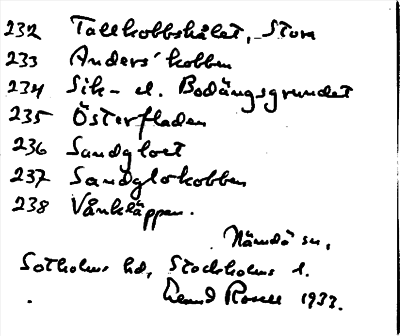 232 Tallkobbshålet, Stora
233 Anders' kobben
234 Sik- el. Bodängsgrundet
235 Österfladen
236 Sandgloet
237 Sandglokobben
238 Vånkläppen.
Nämdö sn,
Sotholms hd, Stockholms l.
1933.